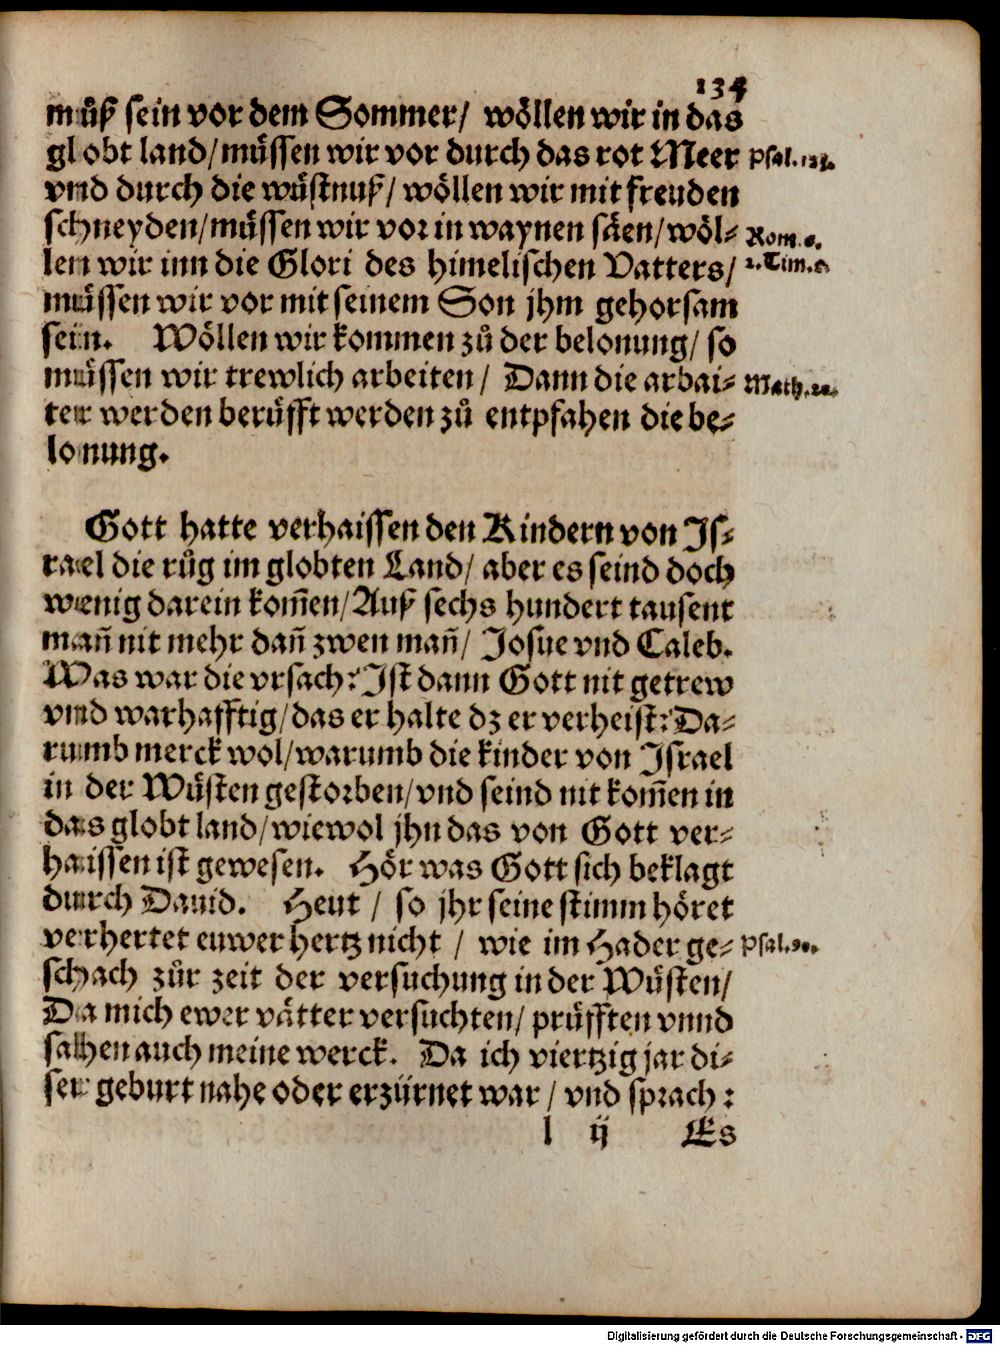 134
muͤß sein vor dem Sommer/ woͤllen wir in das
globt land/muͤssen wir vor durch das rot Meer
vnd durch die wuͤstnuß/ woͤllen wir mit freuden
schneyden/muͤssen wir vor in waynen saͤen/woͤl⸗
len wir inn die Glori des himelischen Vatters/
muͤssen wir vor mit seinem Son jhm gehorsam
sein. Woͤllen wir kommen zů der belonung/ so
muͤssen wir trewlich arbeiten/ Dann die arbai⸗
ter werden beruͤfft werden zů entpfahen die be⸗
lonung.
Psal.
Rom.
2. Tim.
Math.
Gott hatte verhaissen den Kindern von Is⸗
rael die růg im globten Land/ aber es seind doch
wenig darein kom̄en/Auß sechs hundert tausent
mañ nit mehr dañ zwen mañ/ Josue vnd Caleb.
Was war die vrsach? Ist dann Gott nit getrew
vnd warhafftig/das er halte dz er verheist? Da⸗
rumb merck wol/warumb die kinder von Israel
in der Wuͤsten gestorben/vnd seind nit kom̄en in
das globt land/wiewol jhn das von Gott ver⸗
haissen ist gewesen. Hoͤr was Gott sich beklagt
durch Dauid. Heut / so jhr seine stimm hoͤret
verhertet euwer hertz nicht / wie im Hader ge⸗
schach zůr zeit der versuchung in der Wuͤsten/
Da mich ewer vaͤtter versuchten/ pruͤfften vnnd
sahen auch meine werck. Da ich viertzig jar di⸗
ser geburt nahe oder erzürnet war / vnd sprach:
Psal.
l ij Es
Digitalisierung gefördert durch die Deutsche Forschungsgemeinschaft - DFG